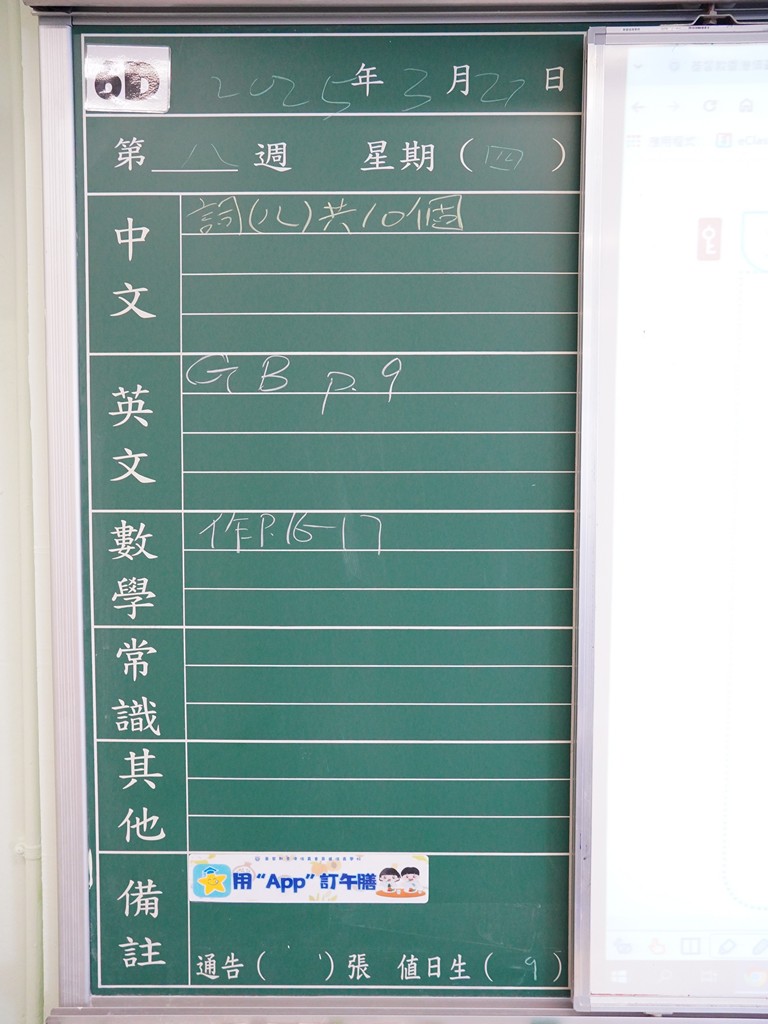 6D
2025年3月27日
第八週 星期(四)
中文
詞(八)共10個
英文
GB p.9
數學
作P.16-17
常識
其他
備註
用“App”訂午膳
通告( )張 值日生( 9 )